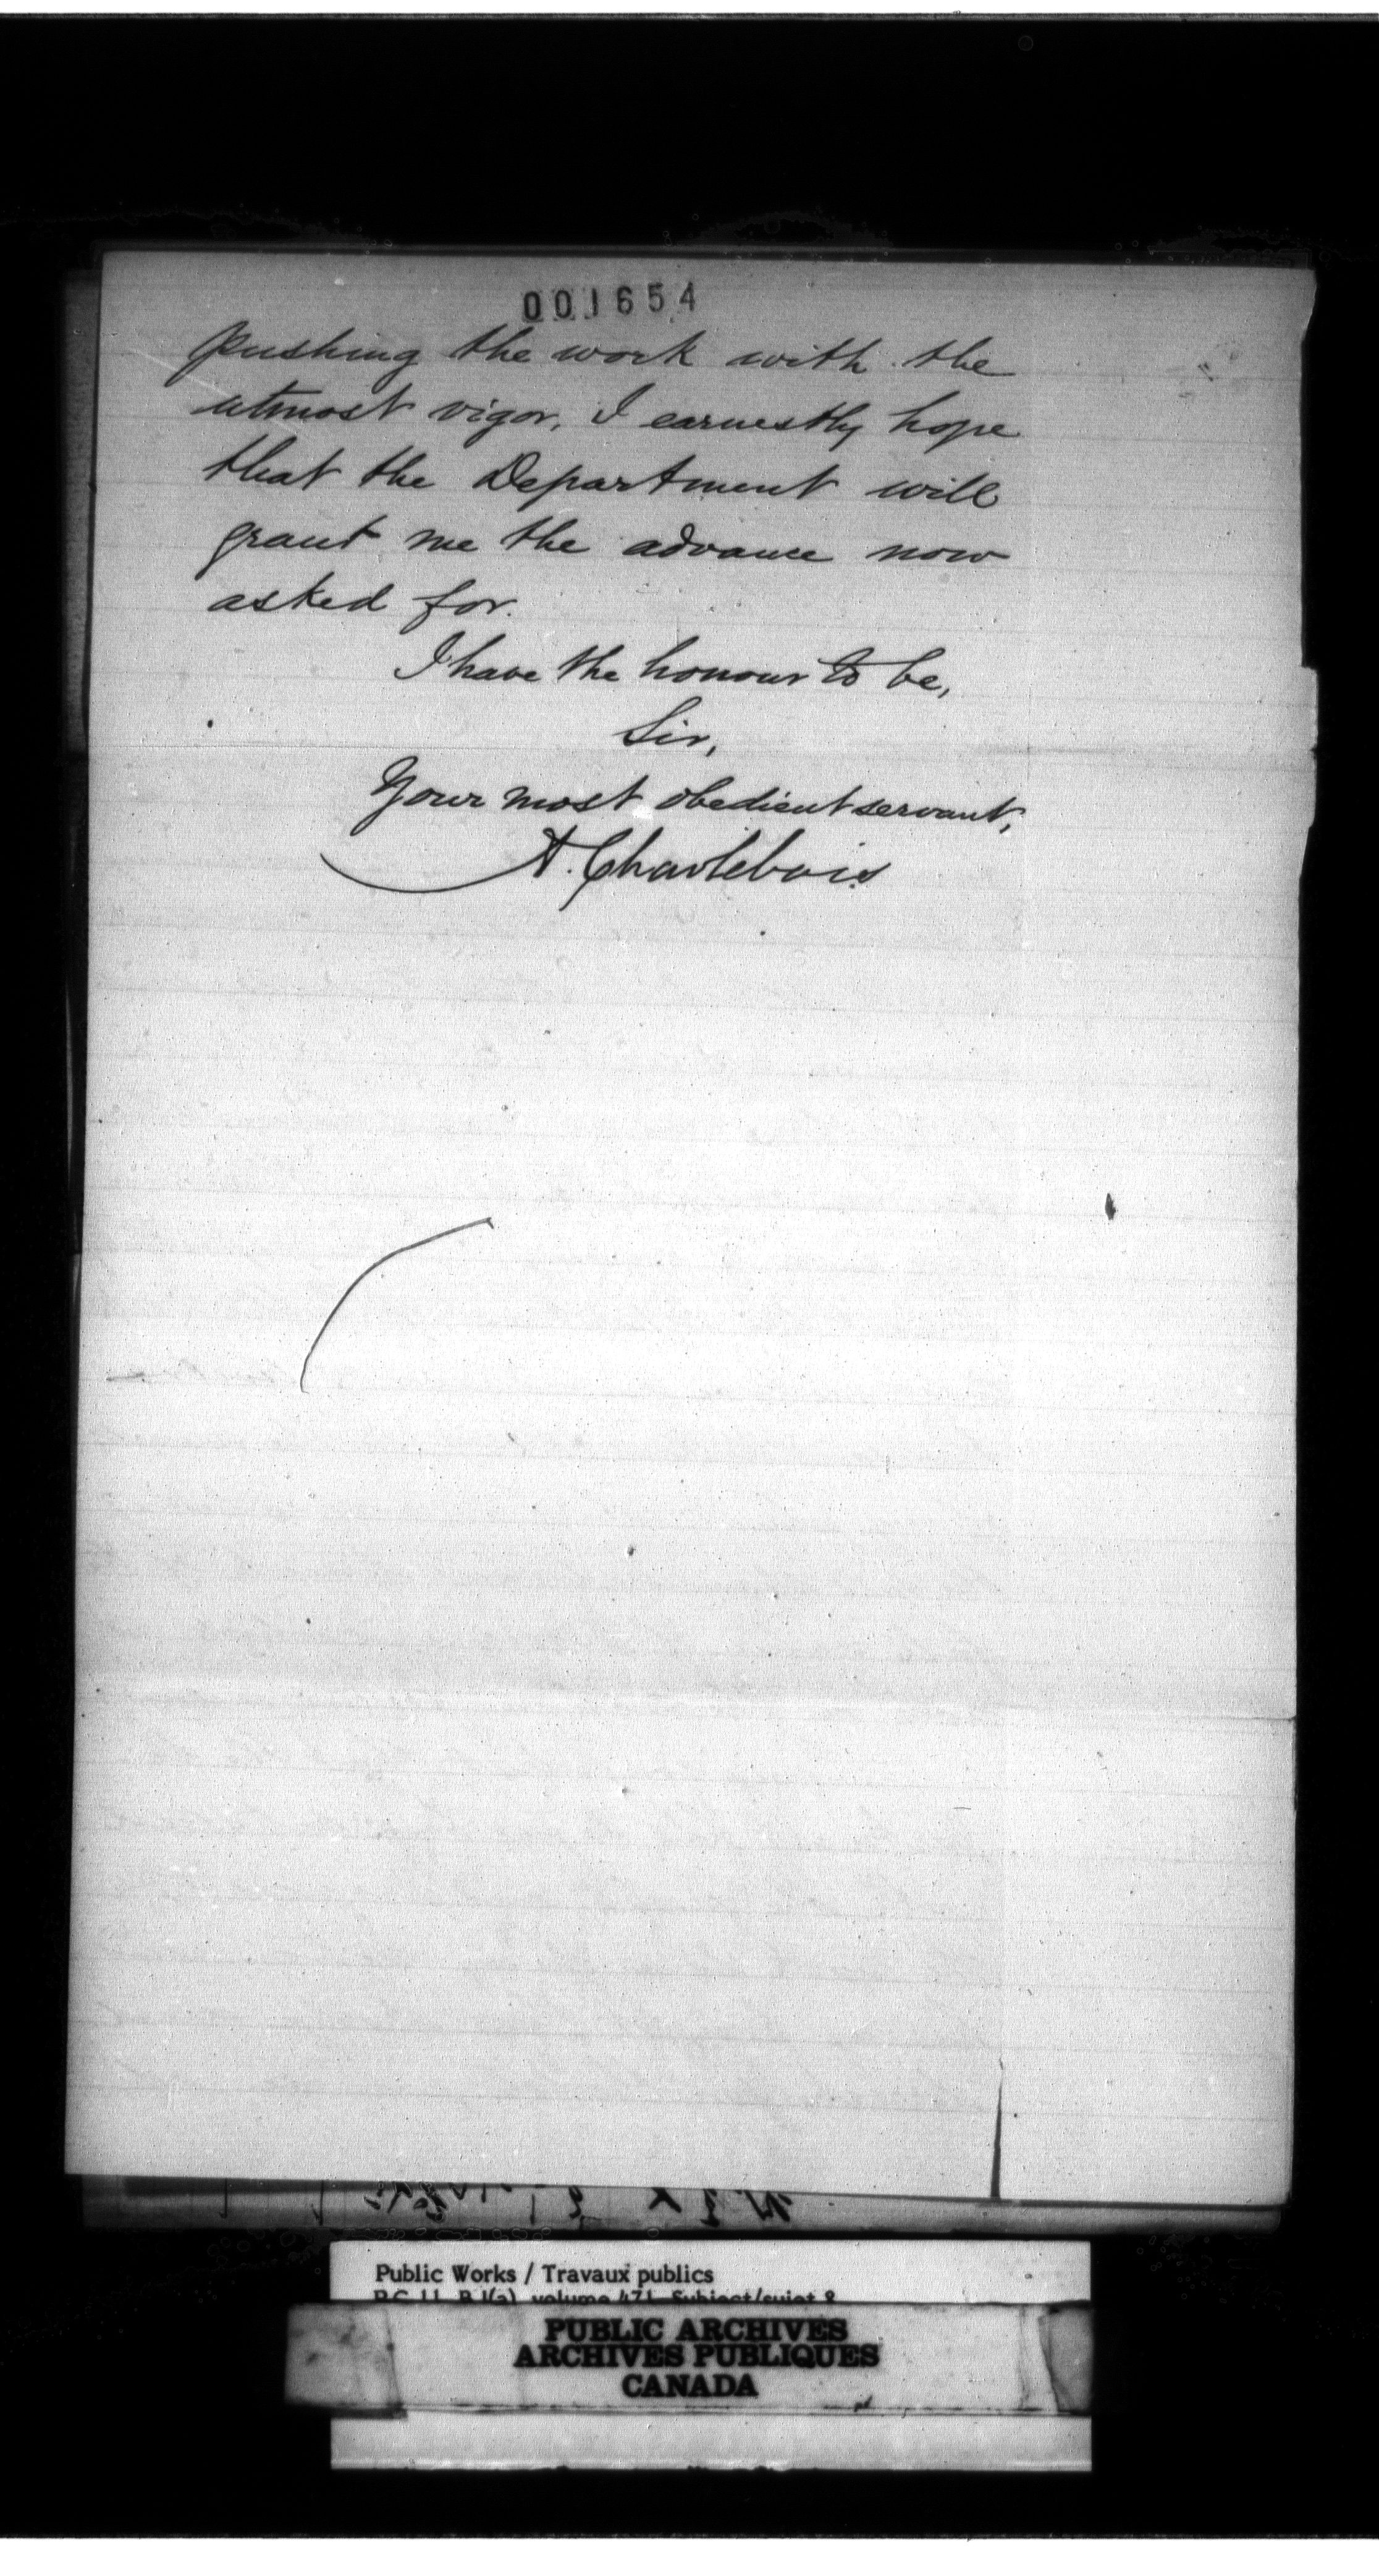 001654
pushing the work with the
utmost vigor, I earnestly hope
that the Department will
grant me the advance now
asked for.
I have the honour to be,
Sir,
Your most obedient servant,
A. Charlebois
Public Works / Travaux publics
volume 471 Subject/sujet 8
PUBLIC ARCHIVES
ARCHIVES PUBLIQUES
CANADA